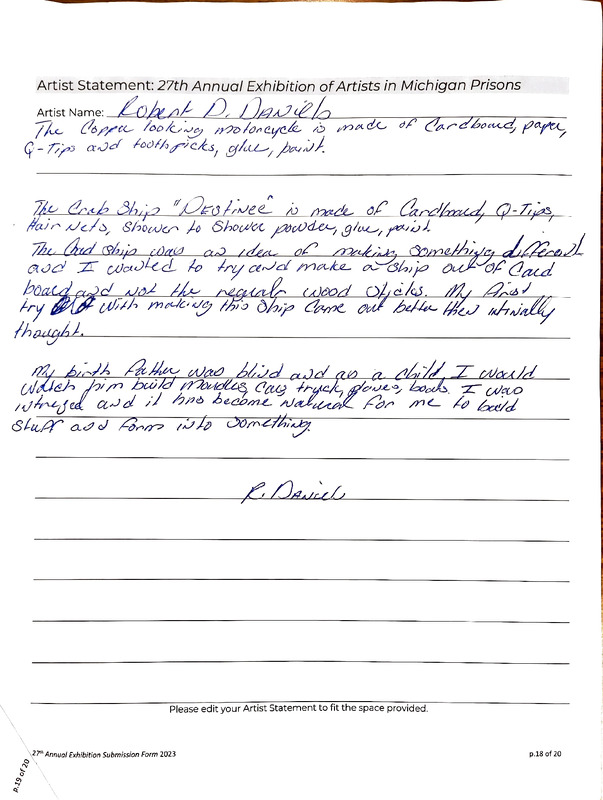 Artist Statement: 27th Annual Exhibition of Artists in Michigan Prisons
Artist Name: Robert D. Daniels
The Copper looking motorcycle is made of Cardboard, paper,
Q-Tips and toothpicks, glue, paint.
The Crab Ship "Destinee" is made of Cardboard, Q-Tips,
Hair Nets, Shower to Shower powder, glue, paint
The Card Ship was an idea of making something different
and I wanted to try and make a ship out of Card
board and not the regualr wood sticks. My first
try with making this Ship Came out better then
thought.
My birth Father was blind and as a child, I would
watch him build Moudles, Cars, truck, planes, boats. I was
and it has become natural for me to build
Stuff and form into Something
R. Daniels
Please edit your Artist Statement to fit the space provided.
27th Annual Exhibition Submission Form 2023
p.18 of 20
p.19 of 20